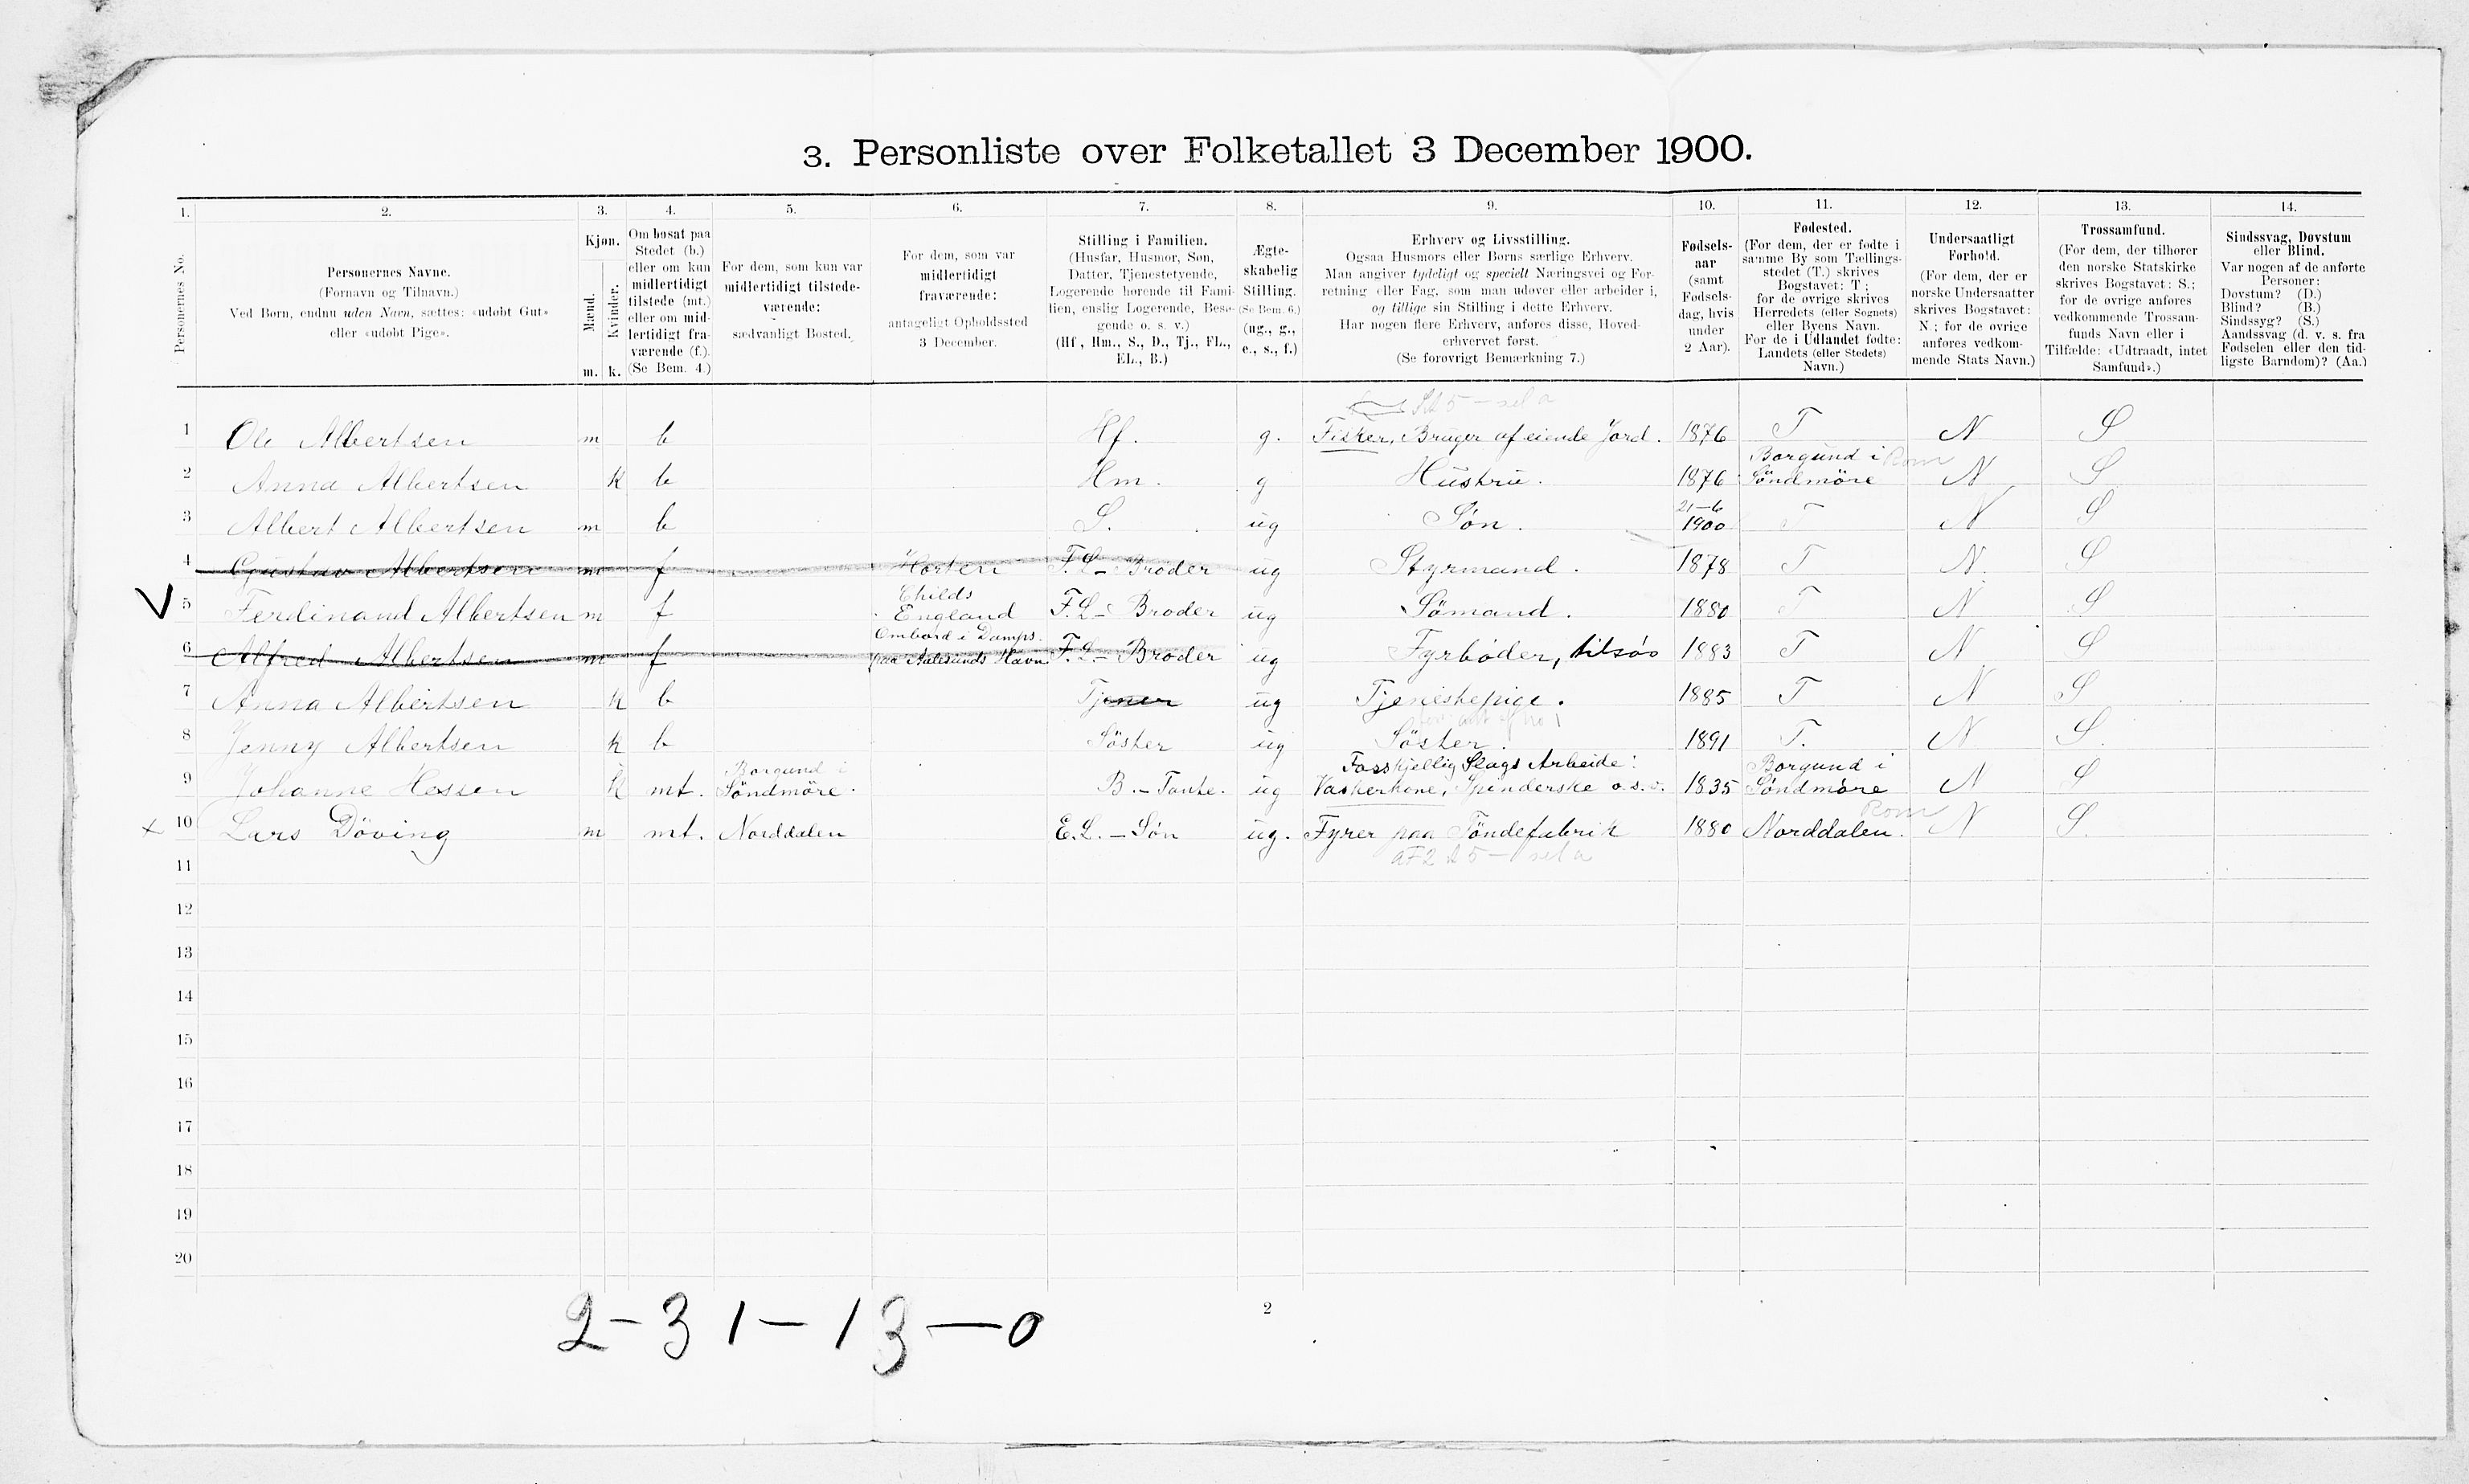 3. Personliste over Folketallet 3 December 1900.
1. 2. 3. 4. 5. 6. 7. 8. 9. 10. 11. 12. 13. 14.
Personernes No.
Personernes Navne.
(Fornavn og Tilnavn.)
Ved Børn, endnu uden Navn, sættes: «udøbt Gut»
eller «udøbt Pige».
Kjøn.
Mænd.
Kvinder.
m. k.
Om bosat paa
Stedet (b.)
eller om kun
midlertidigt
tilstede (mt.)
eller om mid-
lertidigt fra-
værende (f.).
(Se Bem. 4.)
For dem, som kun var
midlertidigt tilstede-
værende:
sædvanligt Bosted.
For dem, som var
midlertidigt
fraværende:
antageligt Opholdssted
3 December.
Stilling i Familien.
(Husfar, Husmor, Søn,
Datter, Tjenestetyende,
Logerende hørende til Fami-
lien, enslig Logerende, Besø-
gende o. s. v.)
(Hf., Hm., S., D., Tj., FL.,
EL., B.)
Ægte-
skabelig
Stilling.
(Se Bem. 6.)
(ug., g.,
e., s., f.)
Erhverv og Livsstilling.
Ogsaa Husmors eller Børns særlige Erhverv.
Man angiver tydeligt og specielt Næringsvei og For-
retning eller Fag, som man udøver eller arbeider i,
og tillige sin Stilling i dette Erhverv.
Har nogen flere Erhverv, anføres disse, Hoved-
erhvervet først.
(Se forøvrigt Bemærkning 7.)
Fødsels-
aar
(samt
Fødsels-
dag, hvis
under
2 Aar).
Fødested.
(For dem, der er fødte i
samme By som Tællings-
stedet (T.) skrives
Bogstavet: T;
for de øvrige skrives
Herredets (eller Sognets)
eller Byens Navn.
For de i Udlandet fødte:
Landets (eller Stedets)
Navn.)
Undersaatligt
Forhold.
(For dem, der er
norske Undersaatter
skrives Bogstavet:
N; for de øvrige
anføres vedkom-
mende Stats Navn.)
Trossamfund.
(For dem, der tilhører
den norske Statskirke
skrives Bogstavet: S.;
for de øvrige anføres
vedkommende Trossam-
funds Navn eller i
Tilfælde: «Udtraadt, intet
Samfund».)
Sindssvag, Døvstum
eller Blind.
Var nogen af de anførte
Personer:
Døvstum? (D.)
Blind? (B.)
Sindssyg? (S.)
Aandssvag (d. v. s. fra
Fødselen eller den tid-
ligste Barndom)? (Aa.)
1 Ole Albertsen m b Hf. g. Fisker, Bruger af eiende Jord. 1876 T N S
Borgund i Rom
2 Anna Albertsen k b Hm. g Hustru. 1876 Söndmöre N S
21-6
3 Albert Albertsen m b S. ug Søn. 1900 T N S
4 Gustav Albertsen m f Horten F.L - Broder ug Styrmand. 1878 T N. S
Childs
V 5 Ferdinand Albertsen m f England F.L - Broder ug Sömand. 1880 T N S
Ombord i Damps.
6 Alfred Albertsen m f paa Aalesunds Havn F.L - Broder ug Fyrbøder, tilsøs 1883 T N S
7 Anna Albertsen k b Tjener ug Tjenestepige. 1885 T N S
8 Jenny Albertsen k b Söster ug Söster. 1891 T. N S
Borgund i Forskjellig Slags Arbeide: Borgund i
9 Johanne Hessen k mt. Söndmöre. B.- Tante. ug Vaskerkone, Spinderske o.s.v. 1835 Söndmøre N S
Rom
x 10 Lars Döving m mt. Norddalen E.L. - Søn ug. Fyrer paa Töndefabrik 1880 Norddalen. N S.
11
12
13
14
15
16
17
18
19
20
2-31-13-0
2